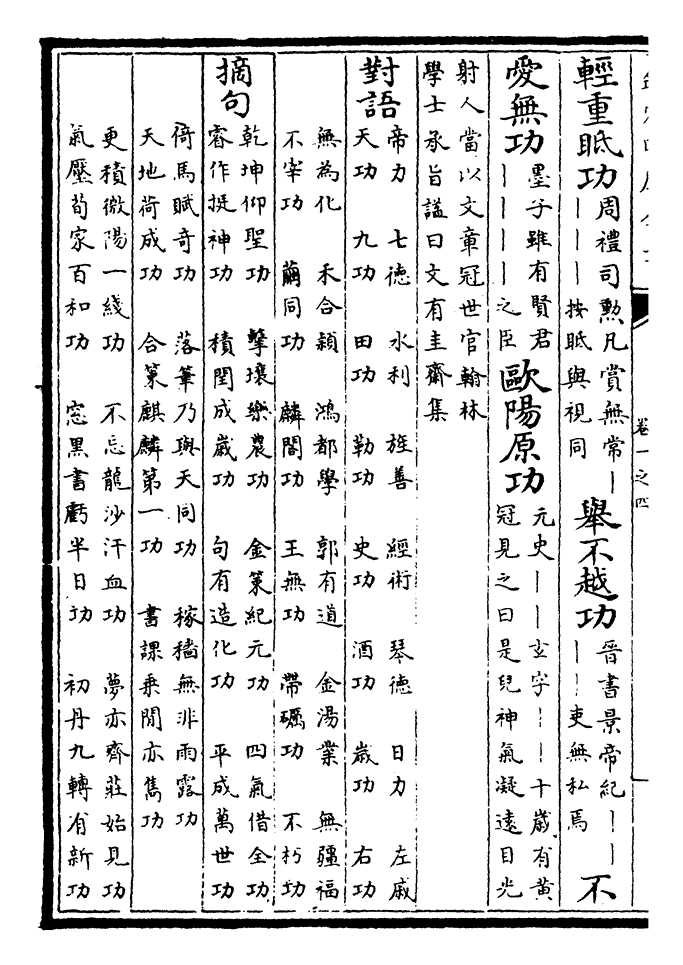 卷一之四
輕重眡功周禮司勲凡賞無常丨
丨丨丨按眡與視同
舉不越功晉書景帝紀丨丨
丨丨吏無私焉
不
愛無功墨子雖有賢君
丨丨丨之臣
歐陽原功元史丨丨玄字丨丨十歲有黄
冠見之曰是兒神氣凝遠目光
射人當以文章冠世官翰林
學士承旨諡曰文有圭齋集
對語
帝力 七德 水利 旌善 經術 琴德 日力 左戚
天功 九功 田功 勒功 史功 酒功 歲功 右功
無為化 禾合穎 鴻都學 郭有道 金湯業 無疆福
不宰功 繭同功 麟閣功 王無功 帶礪功 不朽功
摘句
乾坤仰聖功 擊壤樂農功 金策紀元功 四氣借全功
睿作挺神功 積閏成歲功 句有造化功 平成萬世功
倚馬賦奇功 落筆乃與天同功 稼穡無非雨露功
天地荷成功 合策麒麟第一功 書課乘閒亦雋功
更積微陽一綫功 不忘龍沙汗血功 夢亦齊莊始見功
氣壓荀家百和功 窓黒書虧半日功 初丹九轉有新功